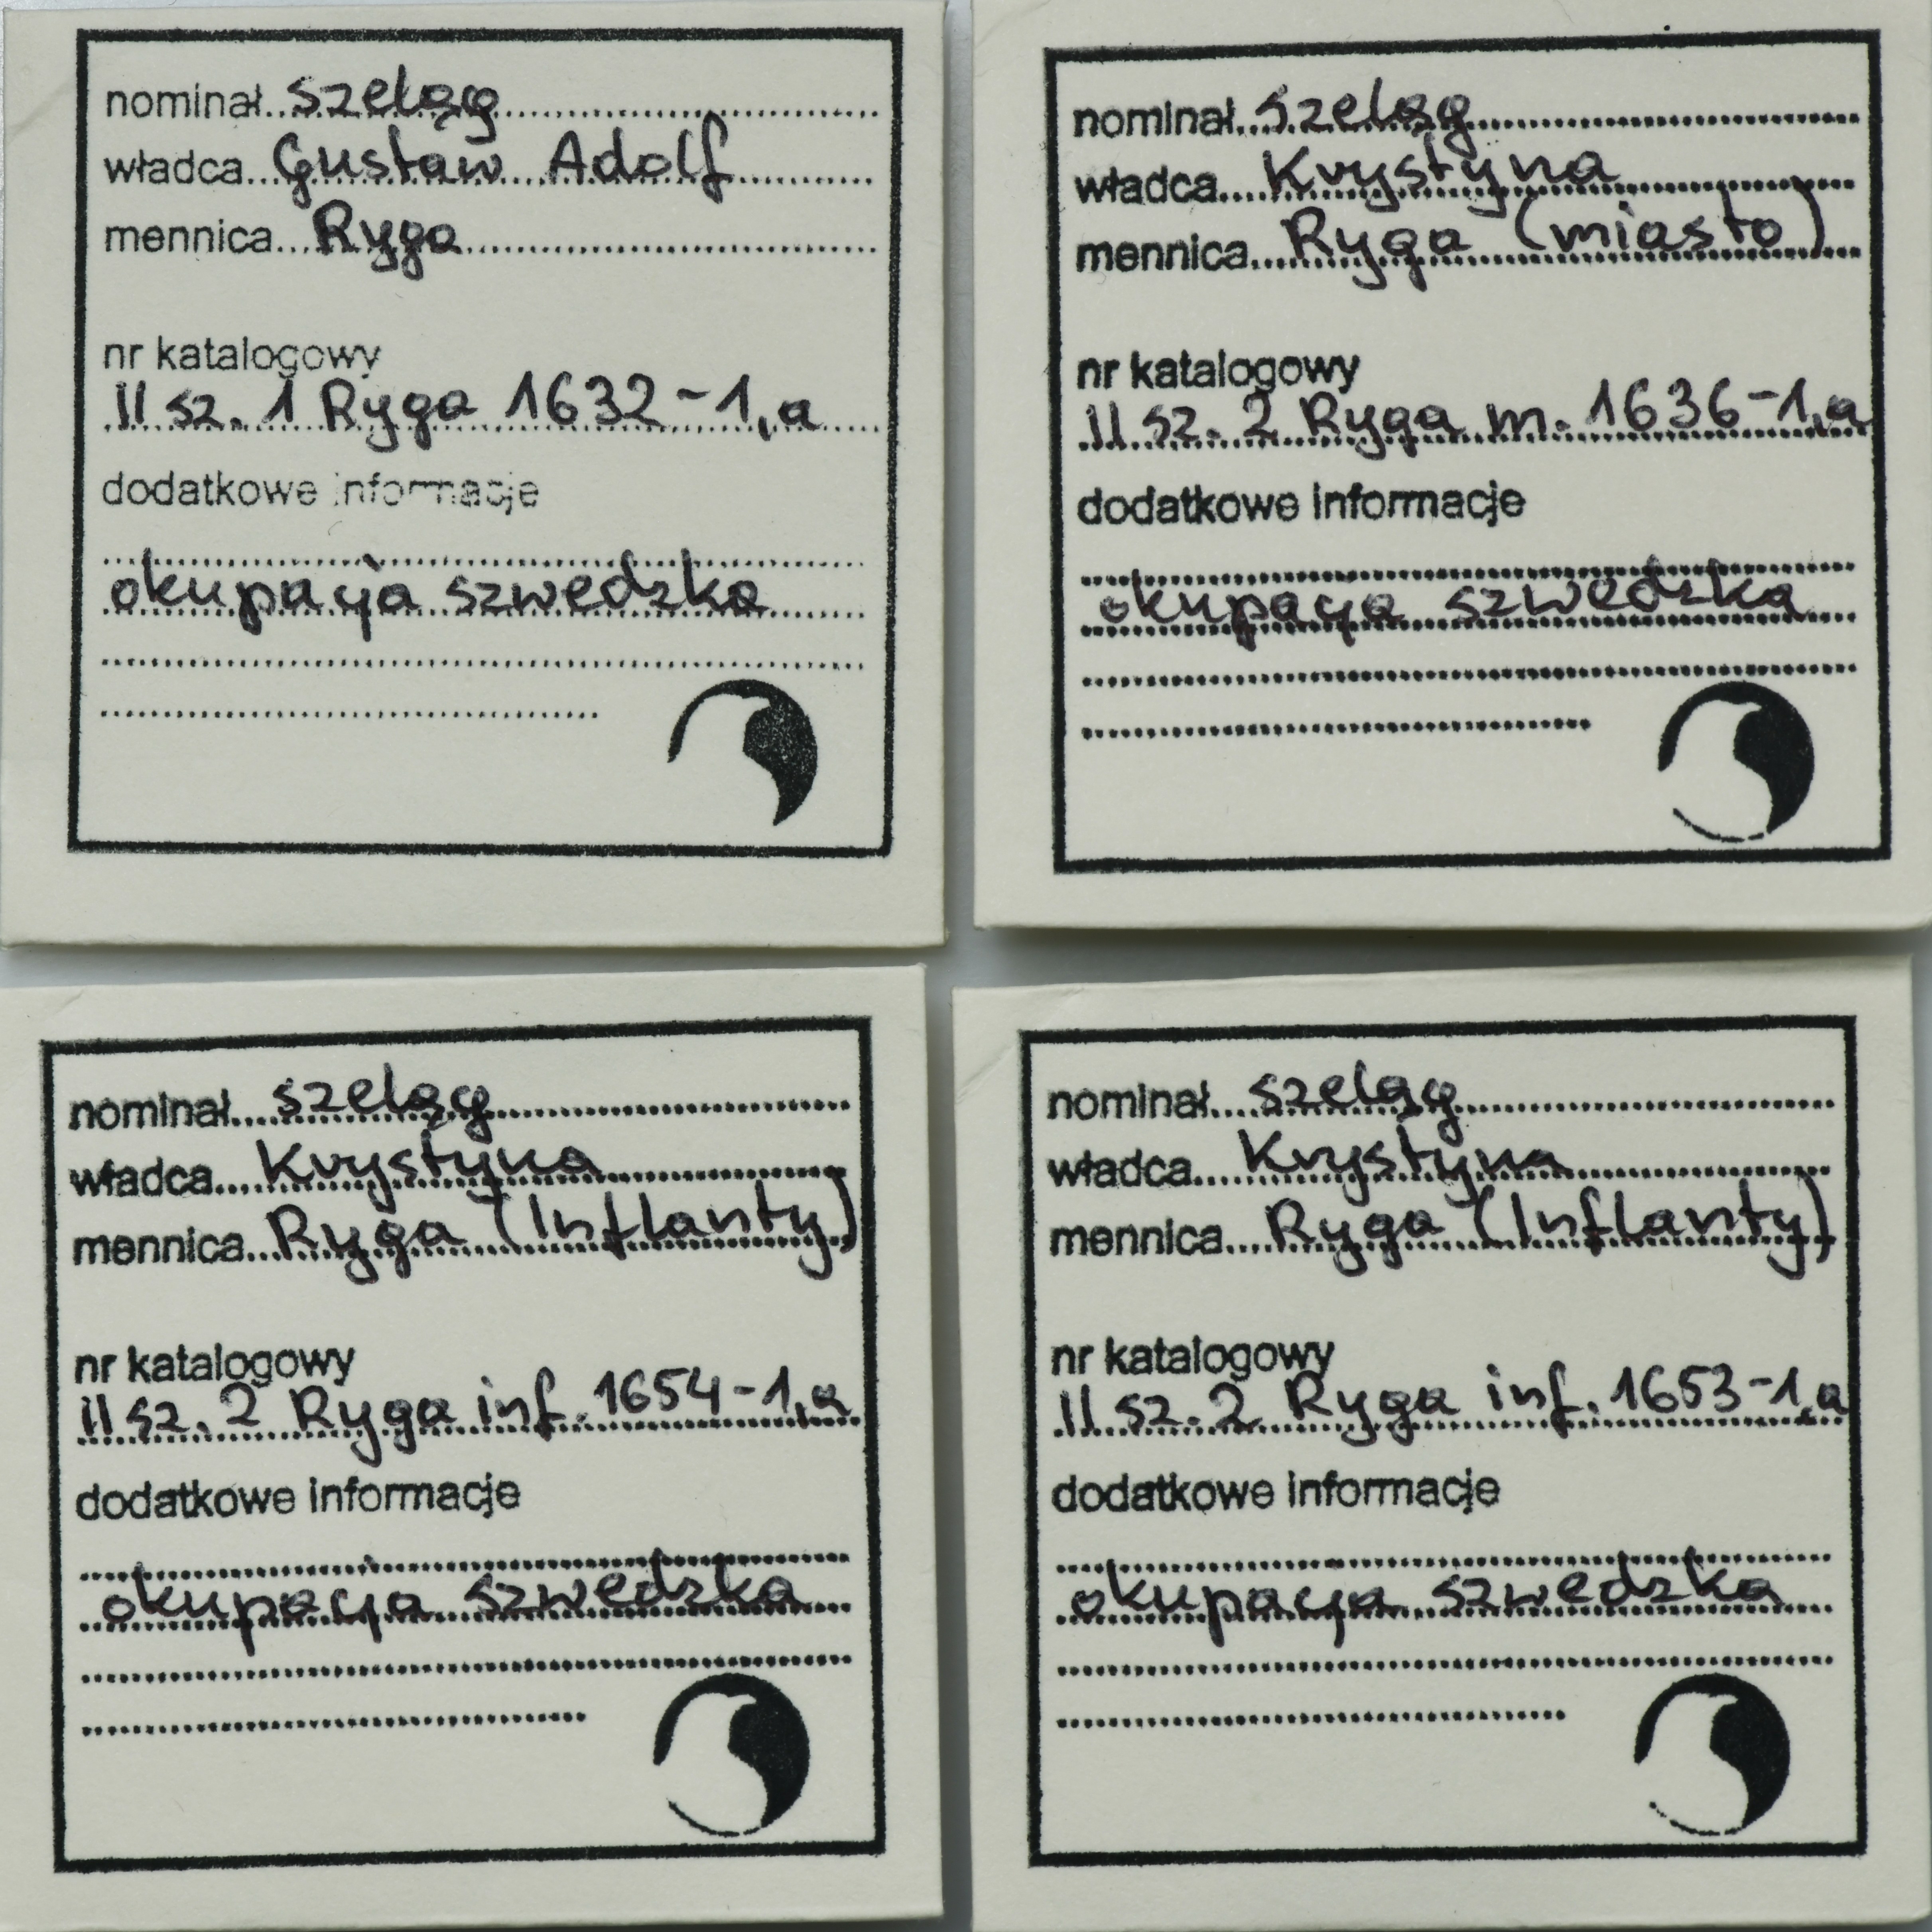 nominał szeląg
władca Gustaw Adolf
mennica Ryga
nr katalogowy
II sz. 1 Ryga 1632-1,a
dodatkowe informacje
okupacja szwedzka
nominał szeląg
władca Krystyna
mennica Ryga (miasto)
nr katalogowy
II sz. 2 Ryga m. 1636-1,a
dodatkowe informacje
okupacja szwedzka
nominał szeląg
władca Krystyna
mennica Ryga (Inflanty)
nr katalogowy
II sz. 2 Ryga inf. 1654-1,a
dodatkowe informacje
okupacja szwedzka
nominał szeląg
władca Krystyna
mennica Ryga (Inflanty)
nr katalogowy
II sz. 2 Ryga inf. 1653-1,a
dodatkowe informacje
okupacja szwedzka